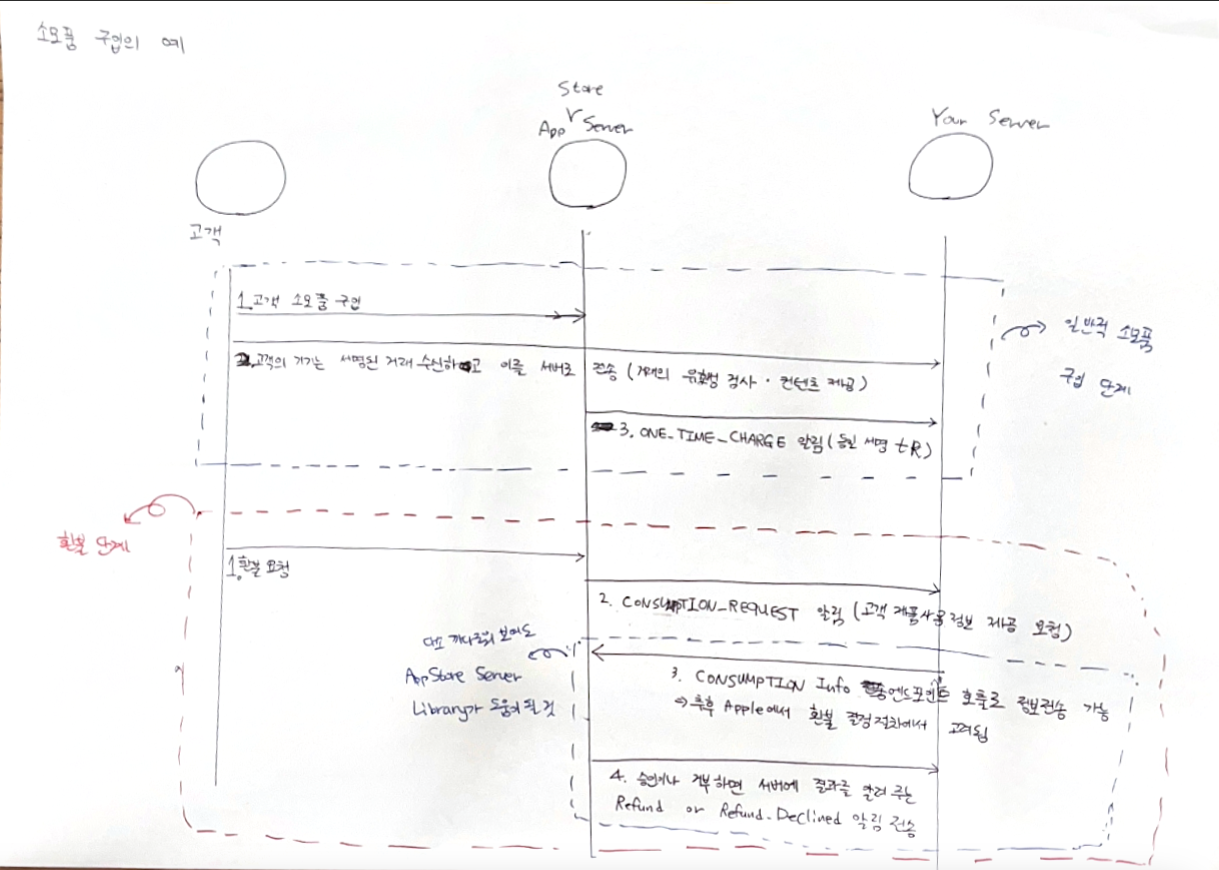 소모품 구입의 예
Store
App Server
Your Server
고객
1. 고객 소모품 구입
일반적 소모품
구입 단계
2. 고객의 기기는 서명된 거래 수신하고 이를 서버로 전송 (거래의 유효성 검사 · 컨텐츠 제공)
3. ONE_TIME_CHARGE 알림 (동일 서명 tR)
환불 단계
1. 환불 요청
2. CONSUMPTION_REQUEST 알림 (고객 제품사용정보 제공 요청)
다소 까다로워 보여도
AppStore Server
Library가 도움이 될 것
3. CONSUMPTION Info 엔드포인트 호출로 정보전송 가능
⇒ 추후 Apple에서 환불 결정절차에서 고려됨
4. 승인이나 거부하면 서버에 결과를 알려 주는
Refund or Refund_Declined 알림 전송